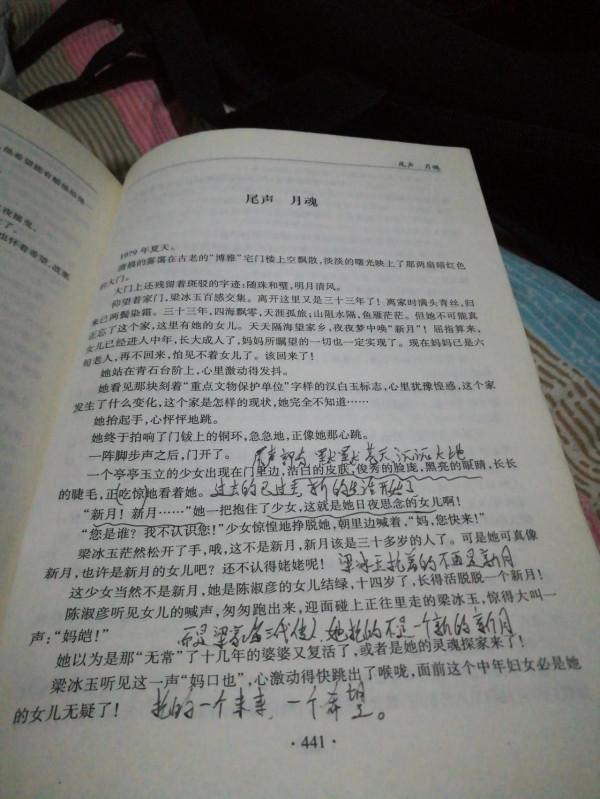 尾声　月魂
尾声　月魂
1979年夏天。
清晨的雾霭在古老的“博雅”宅门楼上空飘散，淡淡的曙光映上了那两扇暗红色
的大门。
大门上还残留着斑驳的字迹：随珠和璧，明月清风。
仰望着家门，梁冰玉百感交集。离开这里又是三十三年了！离家时满头青丝，归
来已两鬓染霜。三十三年，四海飘零，天涯孤旅；山阻水隔，鱼雁茫茫。但她不可能真
正忘了这个家，这里有她的女儿。天天隔海望家乡，夜夜梦中唤“新月”！屈指算来，
女儿已经进入中年，长大成人了，妈妈所瞩望的一切也一定实现了。现在妈妈已是六
旬老人，再不回来，怕见不着女儿了。该回来了！
她站在青石台阶上，心里激动得发抖。
她看见那块刻着“重点文物保护单位”字样的汉白玉标志，心里犹豫惶惑，这个家
发生了什么变化，这个家是怎样的现状，她完全不知道……
她抬起手，心怦怦地跳。
她终于拍响了门钹上的铜环，急急地，正像她那心跳。
一阵脚步声之后，门开了。
一个亭亭玉立的少女出现在门里边，洁白的皮肤，俊秀的脸庞，黑亮的眼睛，长长
的睫毛，正吃惊地看着她。过去的已过去 新的生活开始了
“新月！新月……”她一把抱住了少女，这就是她日夜思念的女儿啊！
“您是谁？我不认识您！”少女惊惶地挣脱她，朝里边喊着，“妈，您快来！”
梁冰玉茫然松开了手，哦，这不是新月，新月该是三十多岁的人了。可是她可真像
新月，也许是新月的女儿吧？还不认得姥姥呢！梁冰玉抱着的不再是新月
这少女当然不是新月，她是陈淑彦的女儿结绿，十四岁了，长得活脱脱一个新月！
陈淑彦听见女儿的喊声，匆匆跑出来，迎面碰上正往里走的梁冰玉，惊得大叫一
声：“妈皑！”而是梁家第三代传人 她抱的不是一个新的新月
她以为是那“无常”了十几年的婆婆又复活了，或者是她的灵魂探家来了！
梁冰玉听见这一声“妈口也”，心激动得快跳出了喉咙，面前这个中年妇女必是她
的女儿无疑了！抱的一个未来，一个希望。
·441·